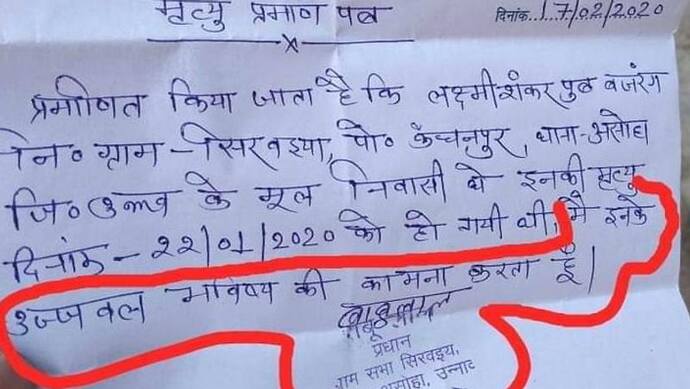 मृत्यु प्रमाण पत्र
दिनांक. 17/02/2020
प्रमाणित किया जाता है कि लक्ष्मीशंकर पुत्र बजरंग
नि० ग्राम - सिरवइया, पो० कंचनपुर, थाना - असोहा
जि० उन्नाव के मूल निवासी थे इनकी मृत्यु
दिनांक - 22/01/2020 को हो गयी थी, मै इनके
उज्जवल भविष्य की कामना करता हूँ।
बाबूलाल
प्रधान
ग्राम सभा सिरवइया,
असोहा, उन्नाव